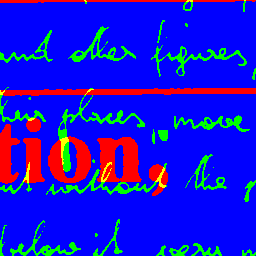 and other figures,
their places, move
tion,
but without the
below it very